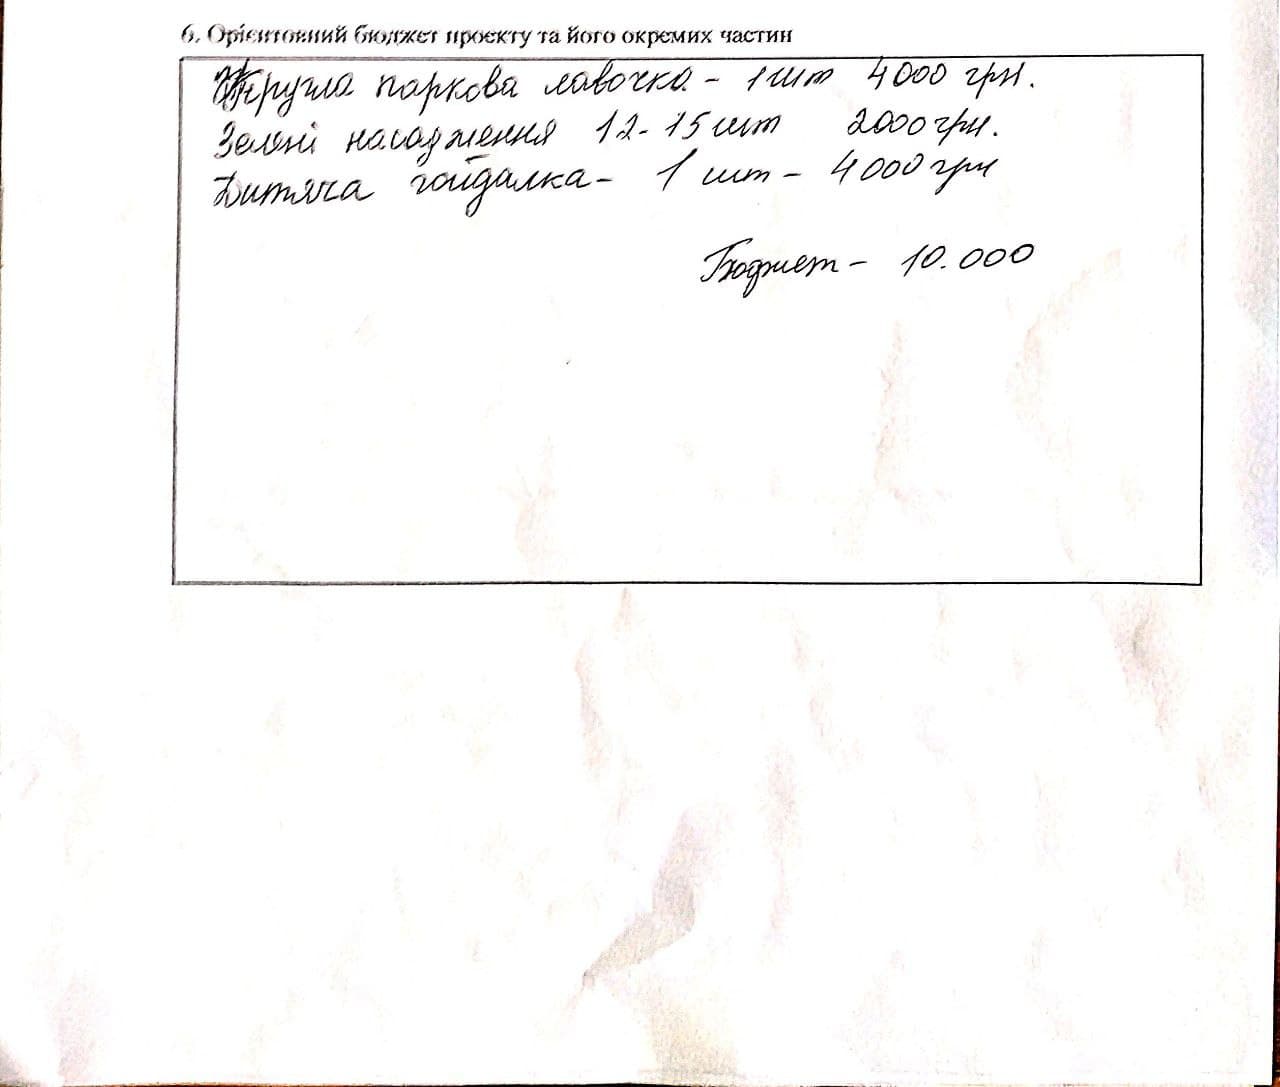 6. Орієнтовний бюджет проєкту та його окремих частин
Кругла паркова лавочка - 1 шт 4000 грн.
Зелені насадження 12-15 шт 2000 грн.
Дитяча гойдалка - 1 шт - 4000 грн
Бюджет - 10.000